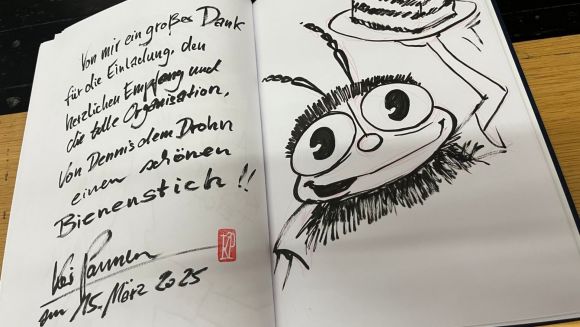 Von mir ein großes Dank
für die Einladung, den
herzlichen Empfang und
die tolle Organisation,
Von Dennis dem Drohn
einen schönen
Bienenstich!!
am 15. März 2025